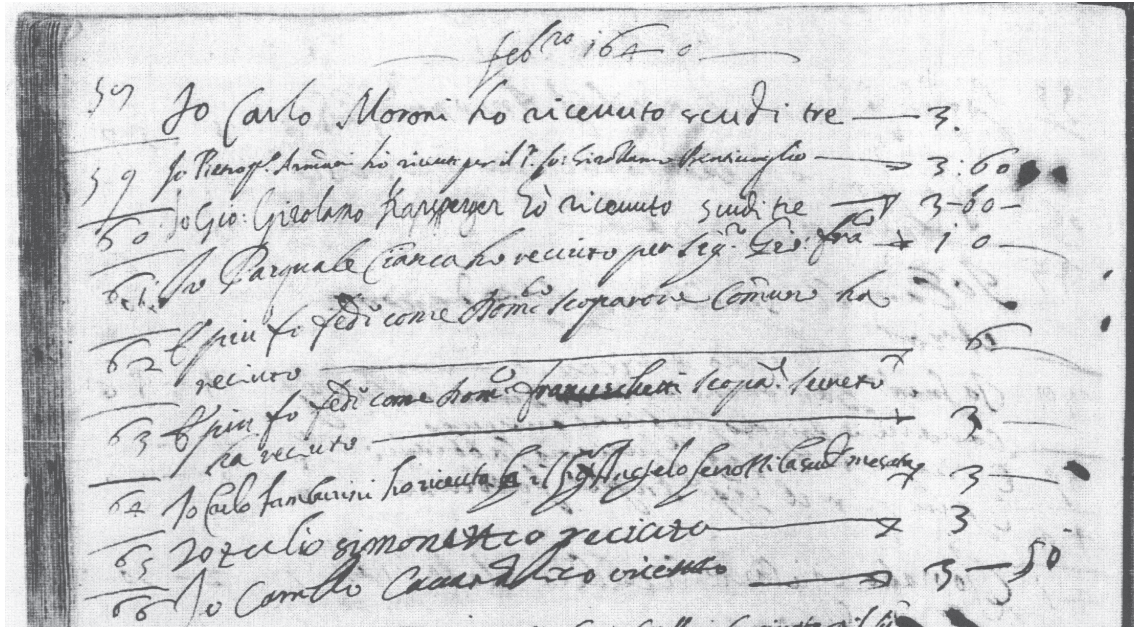 feb.ro 1640
Io Carlo Moroni ho riceuuto scudi tre 3.
59 Io Pietro Armani ho riceuuto per il Sr. Gio: Girollamo 3:60
60 Io Gio: Girolamo Kapsperger hò riceuuto scudi tre 3-60-
61 Io Pasquale Cianca ho receuto per sigr. Gio: franco 10
62 E piu fo fede come Domco scoparore Comune ha
receuto 6
63 E piu fo fede come Domco franceschetti scopar. secreto
ha receuto 3
64 Io Carlo Tamburini ho riceuuta il sigr Angelo mesata 3
65 Io zulio simonettio receuto 3
66 Io Camillo ho riceuto 3-50